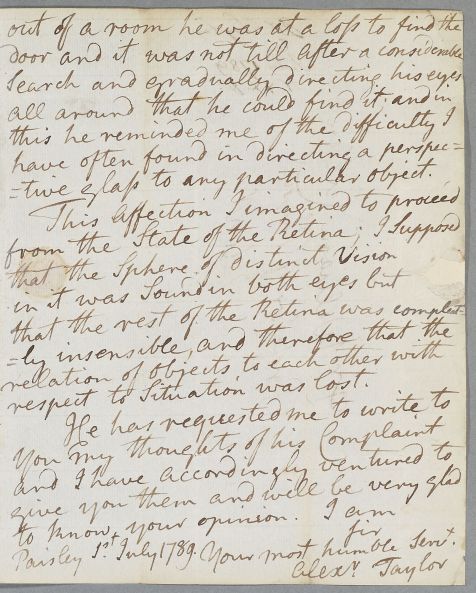 out of a room he was at a loſs to find the
door and it was not till after a considerable
Search and gradually directing his eyes
all around that he could find it: and in
this he reminded me of the difficulty I
have often found in directing a perspec=
=tive glaſs to any particular object.
This affection I imagined to proceed
from the State of the Retina; I Supposed
that the Sphere of distinct Vision
in it was Sound in both eyes but
that the rest of the Retina was complet=
=ly insensible, and therefore that the
relation of objects to each other with
respect to Situation was lost.
He has requested me to write to
You my thoughts of his Complaint
and I have accordingly ventured to
give you them and will be very glad
to know your opinion. I am
Sir
Paisley 1st July 1789. Your most humble Servt.
Alexr Taylor